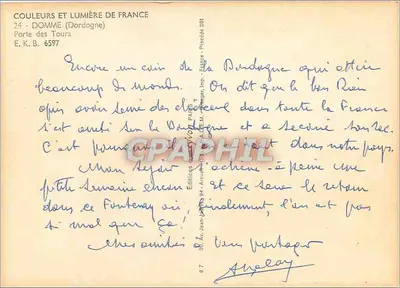 COULEURS ET LUMIÈRE DE FRANCE
24 - DOMME (Dordogne)
Porte des Tours
E. K. B. 6597
Encore un coin de la Dordogne qui attire
beaucoup de monde. On dit que le bon Dieu
après avoir semé des châteaux dans toute la France
s'est arrêté sur la Dordogne et a secoué son sac.
C'est pourquoi dans notre pays.
Mon séjour s'achève - à peine une
petite semaine encore et ce sera le retour
dans ce Fontenay où, finalement, l'on est pas
si mal que ça!
Mes amitiés à vous partager
CPArama.com